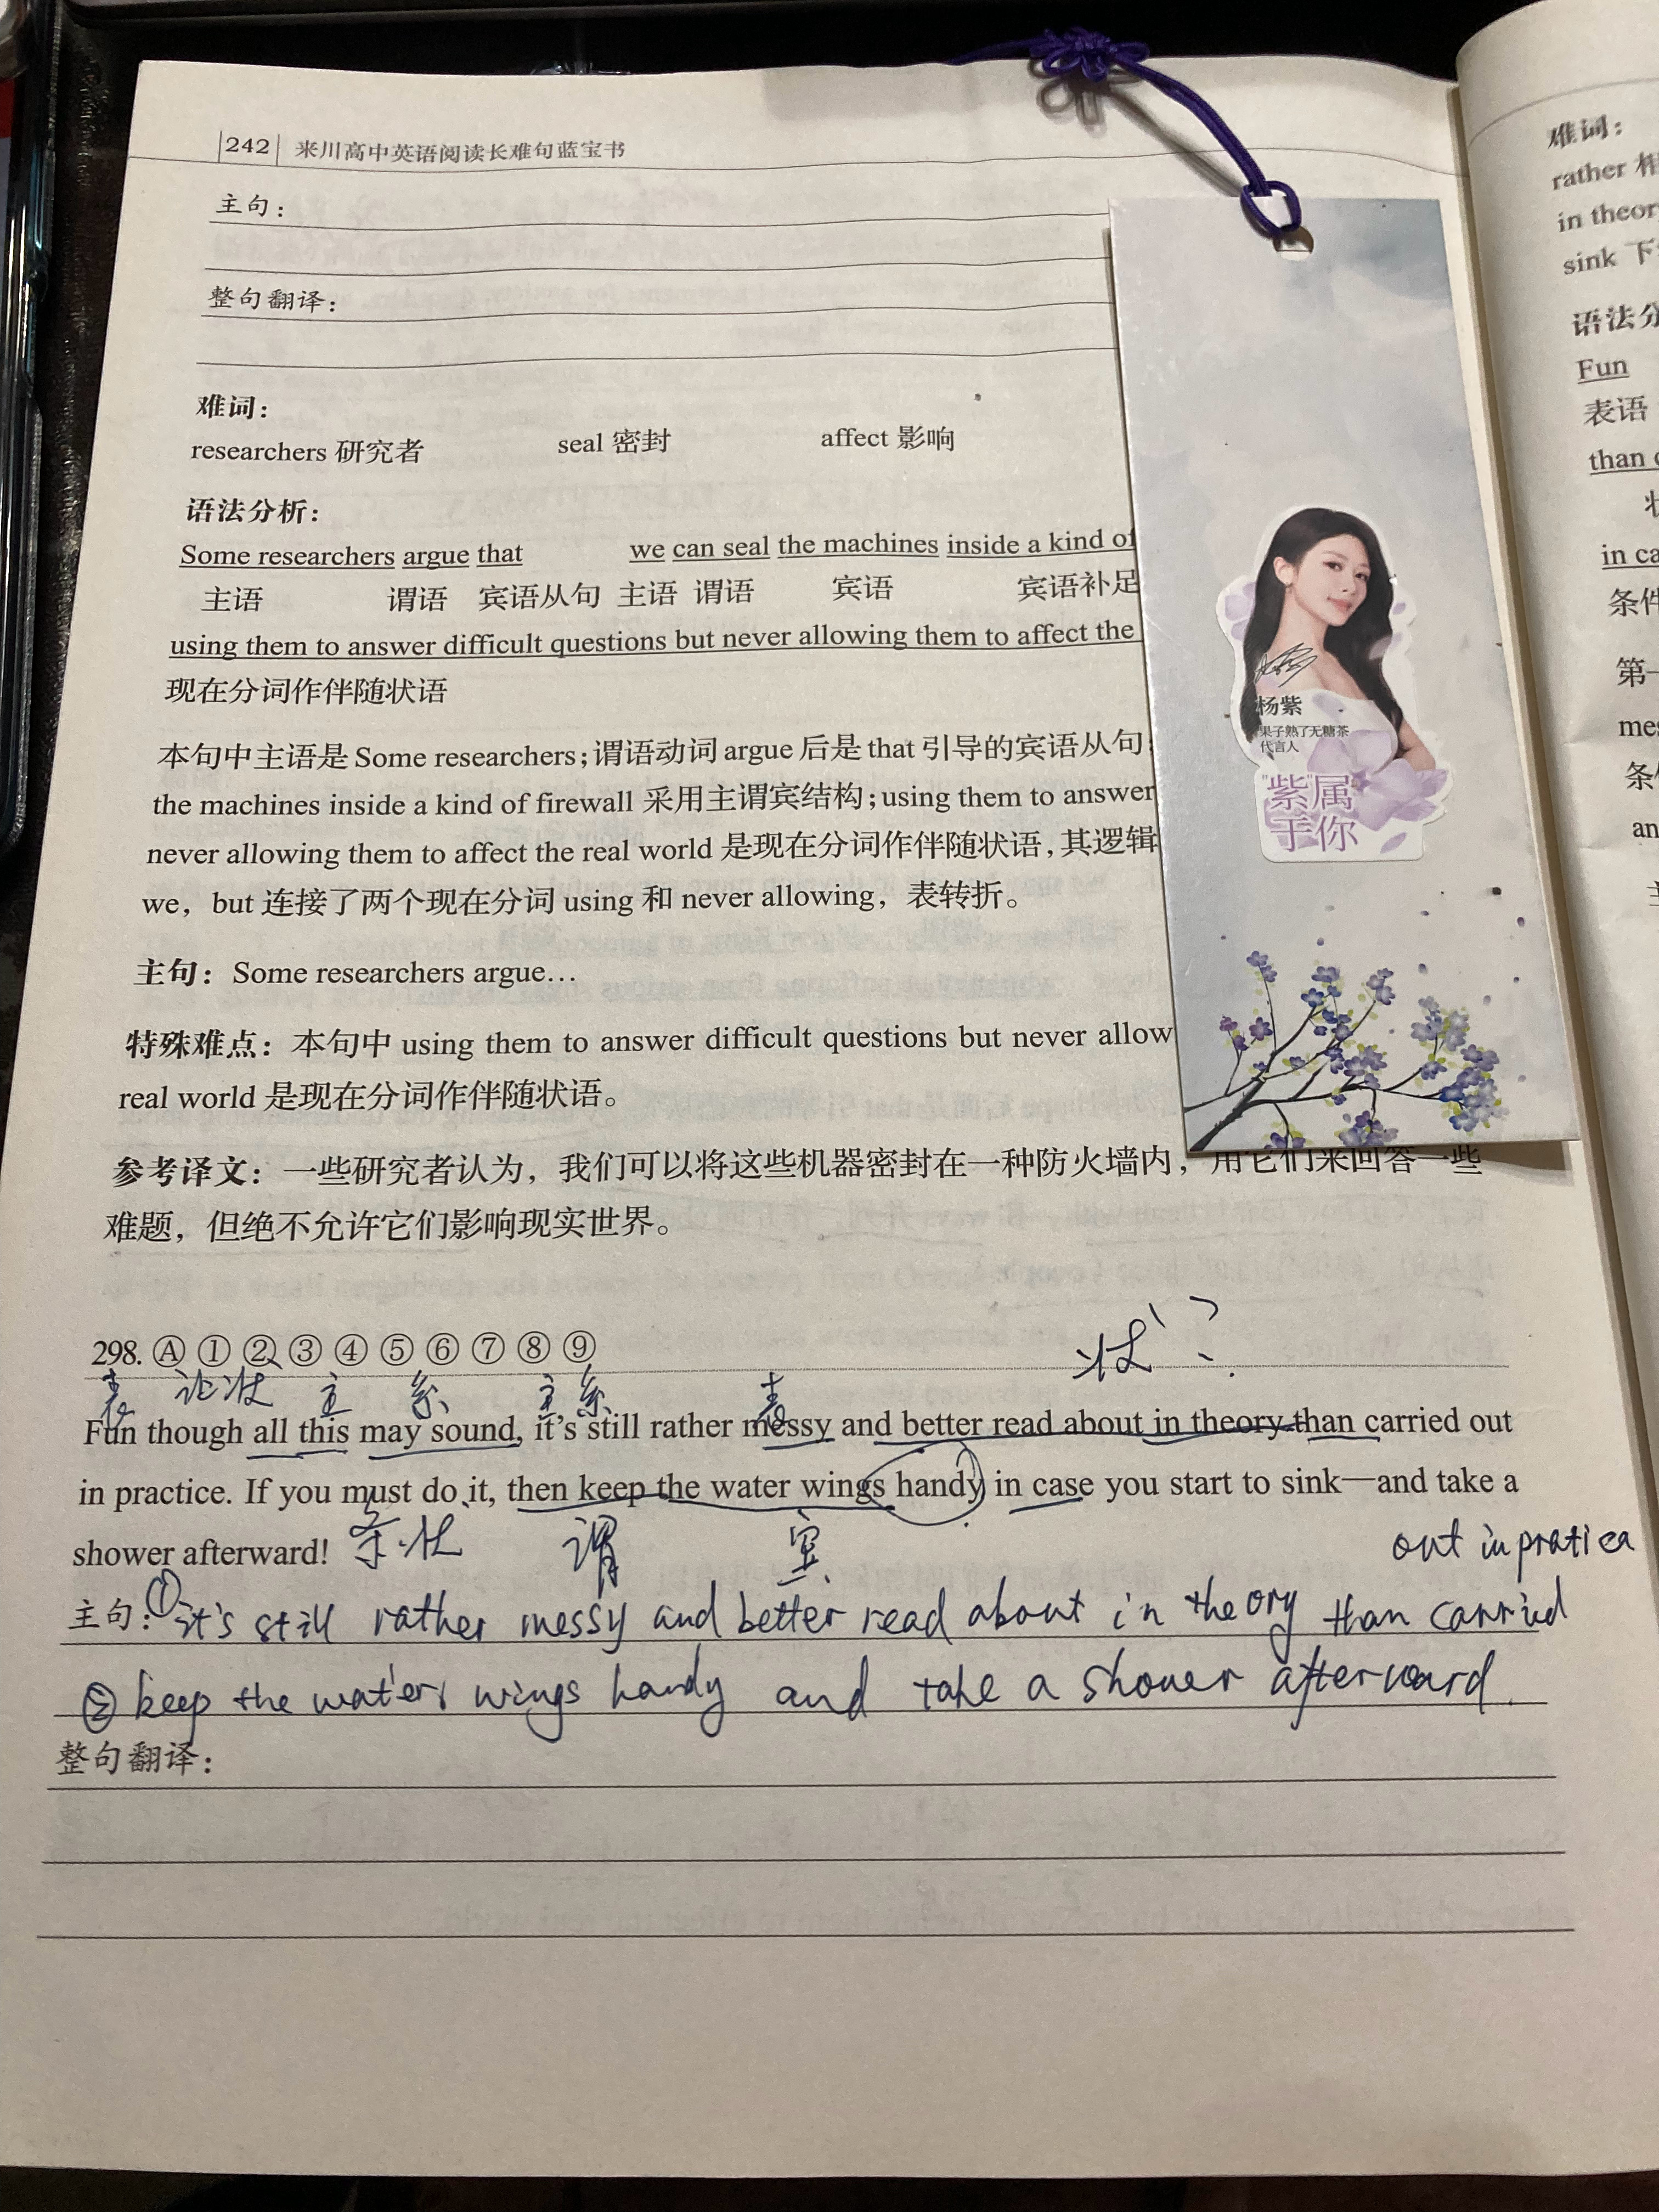 242 来川高中英语阅读长难句蓝宝书
主句：
整句翻译：
难词：
researchers 研究者 seal 密封 affect 影响
语法分析：
Some researchers argue that we can seal the machines inside a kind of
主语 谓语 宾语从句 主语 谓语 宾语 宾语补足
using them to answer difficult questions but never allowing them to affect the
现在分词作伴随状语
本句中主语是 Some researchers；谓语动词 argue 后是 that 引导的宾语从句；
the machines inside a kind of firewall 采用主谓宾结构；using them to answer
never allowing them to affect the real world 是现在分词作伴随状语，其逻辑
we，but 连接了两个现在分词 using 和 never allowing，表转折。
主句：Some researchers argue…
特殊难点：本句中 using them to answer difficult questions but never allow
real world 是现在分词作伴随状语。
参考译文：一些研究者认为，我们可以将这些机器密封在一种防火墙内，用它们来回答一些
难题，但绝不允许它们影响现实世界。
298. Ⓐ ① ② ③ ④ ⑤ ⑥ ⑦ ⑧ ⑨
状？
表 让状 主 系 主系 表
Fun though all this may sound, it's still rather messy and better read about in theory than carried out
in practice. If you must do it, then keep the water wings handy in case you start to sink—and take a
shower afterward! 条状 谓 宾
out in pratica
主句：①it's still rather messy and better read about in theory than carried
②keep the waters wings handy and take a shower afterward.
整句翻译：
杨紫
果子熟了无糖茶
代言人
"紫"属
于你
难词：
rather 相
in theory
sink 下
语法分
Fun
表语
than c
in ca
条件
第一
mes
条件
an